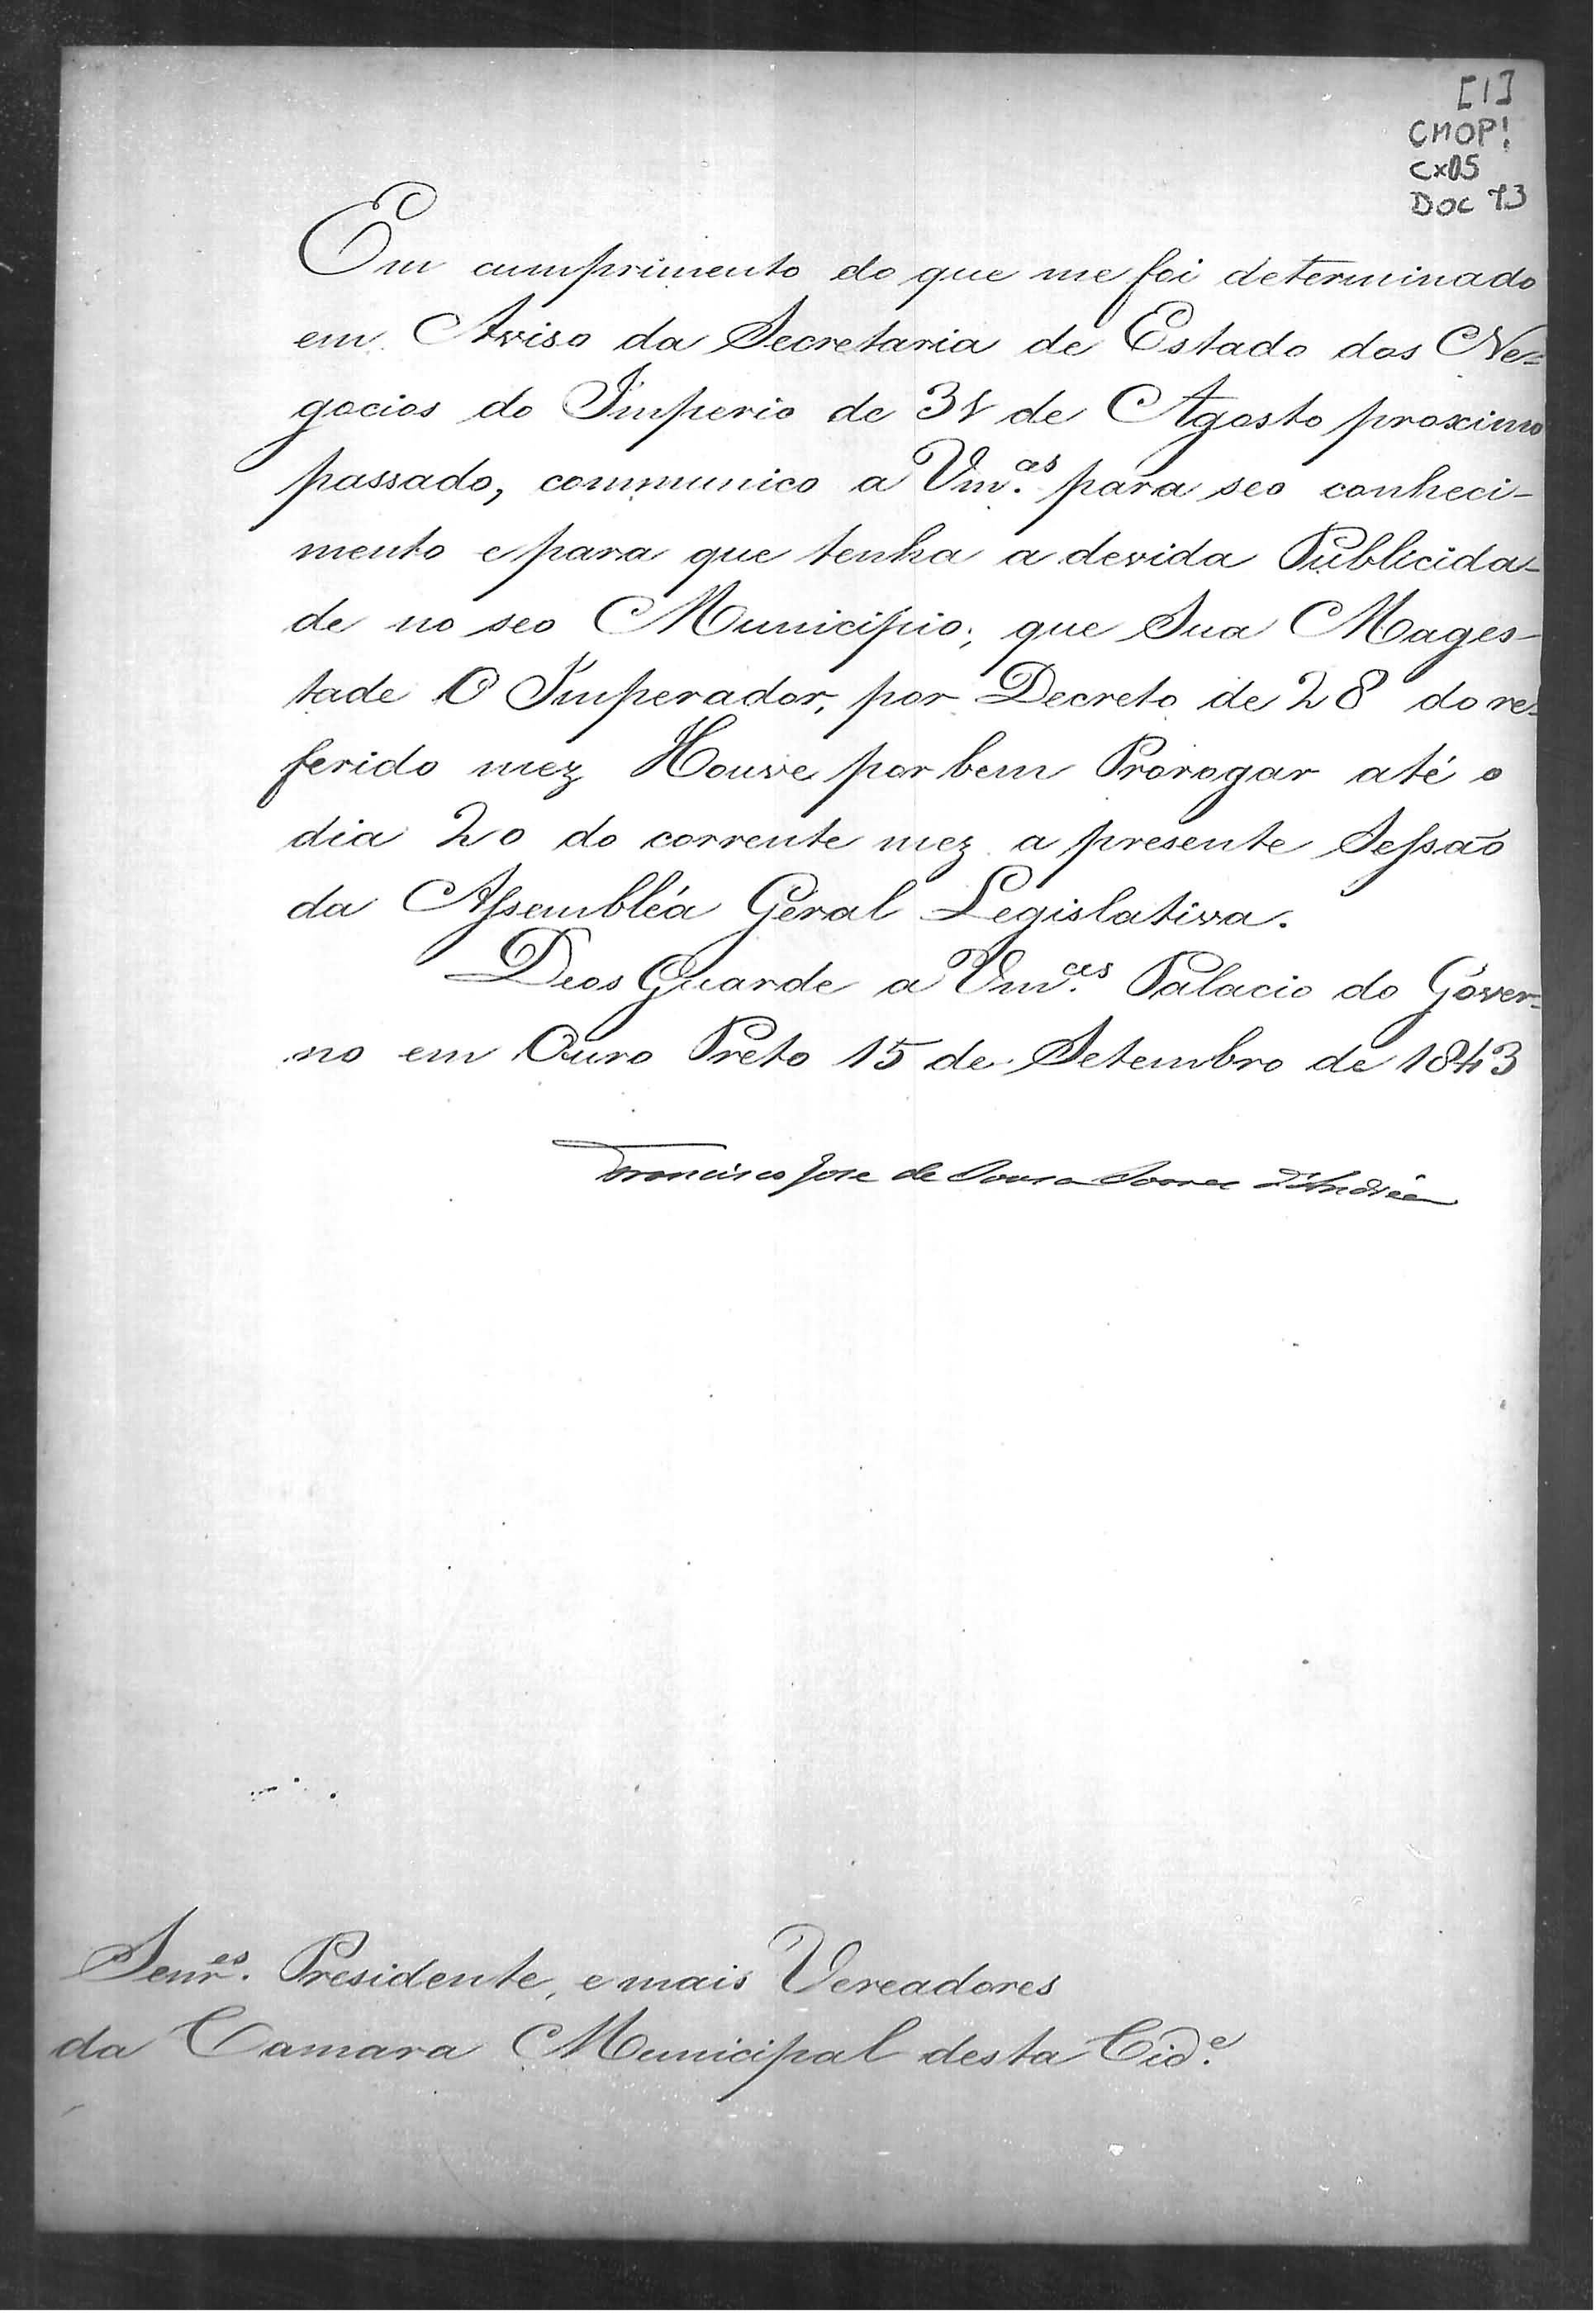 [1]
CMOP!
CX05
DOC 73
Em cumprimento do que me foi determinado
em Aviso da Secretaria de Estado dos Ne=
gocios do Imperio de 31 de Agosto proximo
passado, communico a Vm.ces para seo conheci-
mento e para que tenha a devida Publicida-
de no seo Municipio; que Sua Mages-
tade O Imperador, por Decreto de 28 do re=
ferido mez Houve por bem Prorogar até o
dia 20 do corrente mez a presente Seſsaõ
da Aſsembléa Geral Legislativa.
Deos Guarde a Vm.ces Palacio do Gover=
no em Ouro Preto 15 de Setembro de 1843
Francisco Jose de Sousa Soares d'Andréa
Senr.es Presidente, e mais Vereadores
da Camara Municipal desta Cid.e